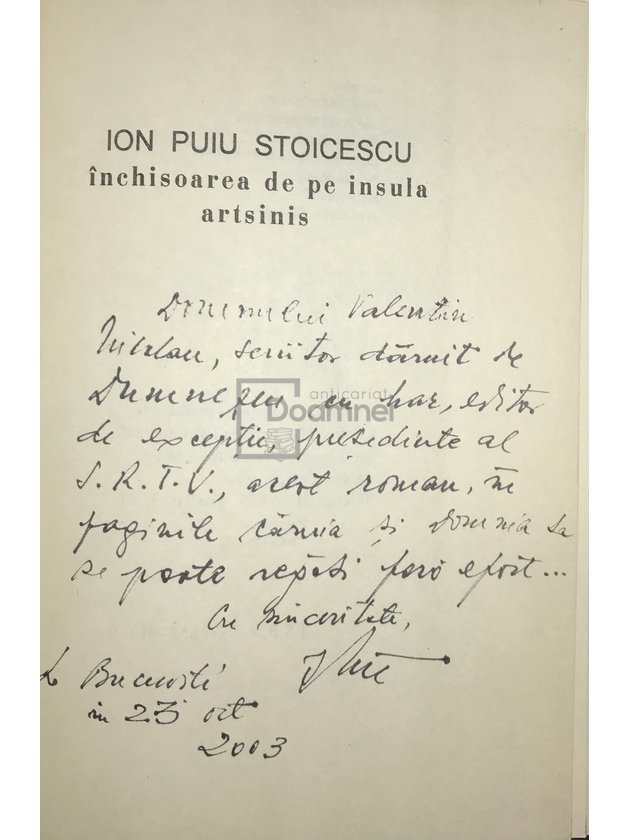 ION PUIU STOICESCU
închisoarea de pe insula
artsinis
Domnului Valentin
Nicolau, scriitor dăruit de
Dumnezeu cu har, editor
anticariat
Doamnei
de excepție, președinte al
S.R.T.V., acest roman, în
paginile căruia și Domnia sa
se poate regăsi fără efort...
Cu sinceritate,
București
in 23 oct
2003